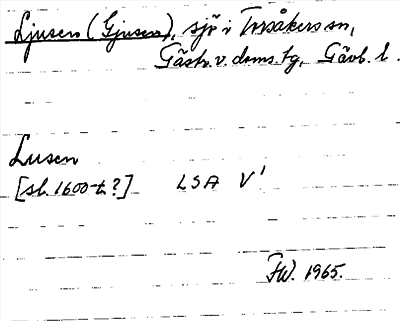 Ljusen (Gjusen), sjö i Torsåkers sn,
Gästr. v. doms. tg, Gävl. l.
Lusen
[sl. 1600-t.?] LSA V'
FW. 1965.